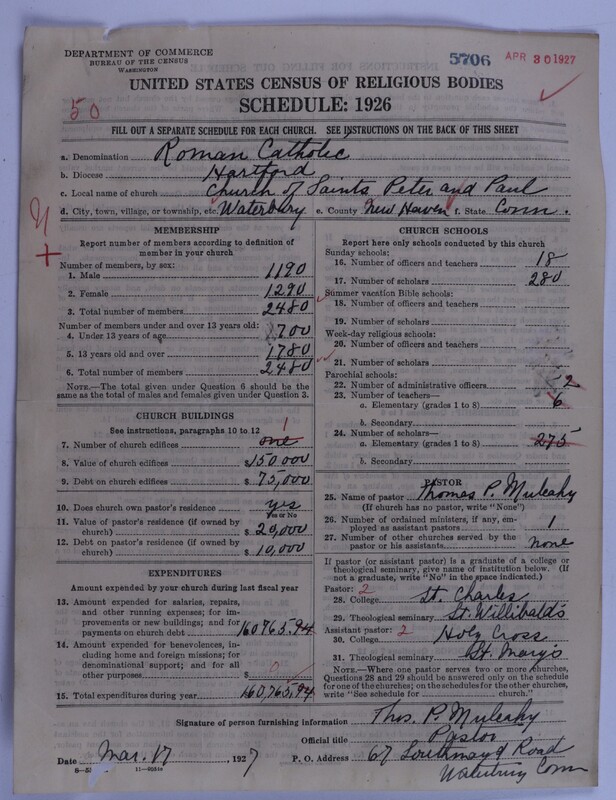 DEPARTMENT OF COMMERCE
BUREAU OF THE CENSUS
WASHINGTON
5706
APR 30 1927
UNITED STATES CENSUS OF RELIGIOUS BODIES
SCHEDULE: 1926
50
FILL OUT A SEPARATE SCHEDULE FOR EACH CHURCH. SEE INSTRUCTIONS ON THE BACK OF THIS SHEET
a. Denomination Roman Catholic
b. Diocese Hartford
c. Local name of church Church of Saints Peter and Paul
d. City, town, village, or township, etc. Waterbury e. County New Haven f. State Conn.
MEMBERSHIP
Report number of members according to definition of
member in your church
Number of members, by sex:
1. Male 1190
2. Female 1290
3. Total number of members 2480
Number of members under and over 13 years old:
4. Under 13 years of age 700
5. 13 years old and over 1780
6. Total number of members 2480
NOTE.—The total given under Question 6 should be
the same as the total of males and females given under Question 3.
CHURCH BUILDINGS
See instructions, paragraphs 10 to 12
1
7. Number of church edifices one
8. Value of church edifices $150,000
9. Debt on church edifices $75,000
10. Does church own pastor's residence? yes
Yes or No
11. Value of pastor's residence (if owned by
church) $20,000
12. Debt on pastor's residence (if owned by
church) $10,000
EXPENDITURES
Amount expended by your church during last fiscal year
13. Amount expended for salaries, repairs,
and other running expenses; for im-
provements or new buildings; and for
payments on church debt 160,765.94
14. Amount expended for benevolences, in-
cluding home and foreign missions; for
denominational support; and for all
other purposes $ 0
15. Total expenditures during year 160,765.94
CHURCH SCHOOLS
Report here only schools conducted by this church
Sunday schools:
16. Number of officers and teachers 18
17. Number of scholars 280
Summer vacation Bible schools:
18. Number of officers and teachers
19. Number of scholars
Week-day religious schools:
20. Number of officers and teachers
21. Number of scholars
Parochial schools:
22. Number of administrative officers 2
23. Number of teachers—
a. Elementary (grades 1 to 8) 6
b. Secondary
24. Number of scholars—
a. Elementary (grades 1 to 8) 275
b. Secondary
PASTOR
25. Name of pastor Thomas P. Mulcahy
(If church has no pastor, write "None")
26. Number of ordained ministers, if any, em-
ployed as assistant pastors 1
27. Number of other churches served by the
pastor or his assistants none
If pastor (or assistant pastor) is a graduate of a college or
theological seminary, give name of institution below. (If
not a graduate, write "No" in the space indicated.)
Pastor: 2
28. College St. Charles
29. Theological seminary St. Willibald's
Assistant pastor: 2
30. College Holy Cross
31. Theological seminary St. Mary's
NOTE.—Where one pastor serves two or more churches,
Questions 28 and 29 should be answered only on the schedule
for one of the churches; on the schedules for the other churches,
write "See schedule for church."
Signature of person furnishing information Thos. P. Mulcahy
Official title Pastor
Date Mar. 17, 1927 P. O. Address 67 Southmayd Road
Waterbury Conn